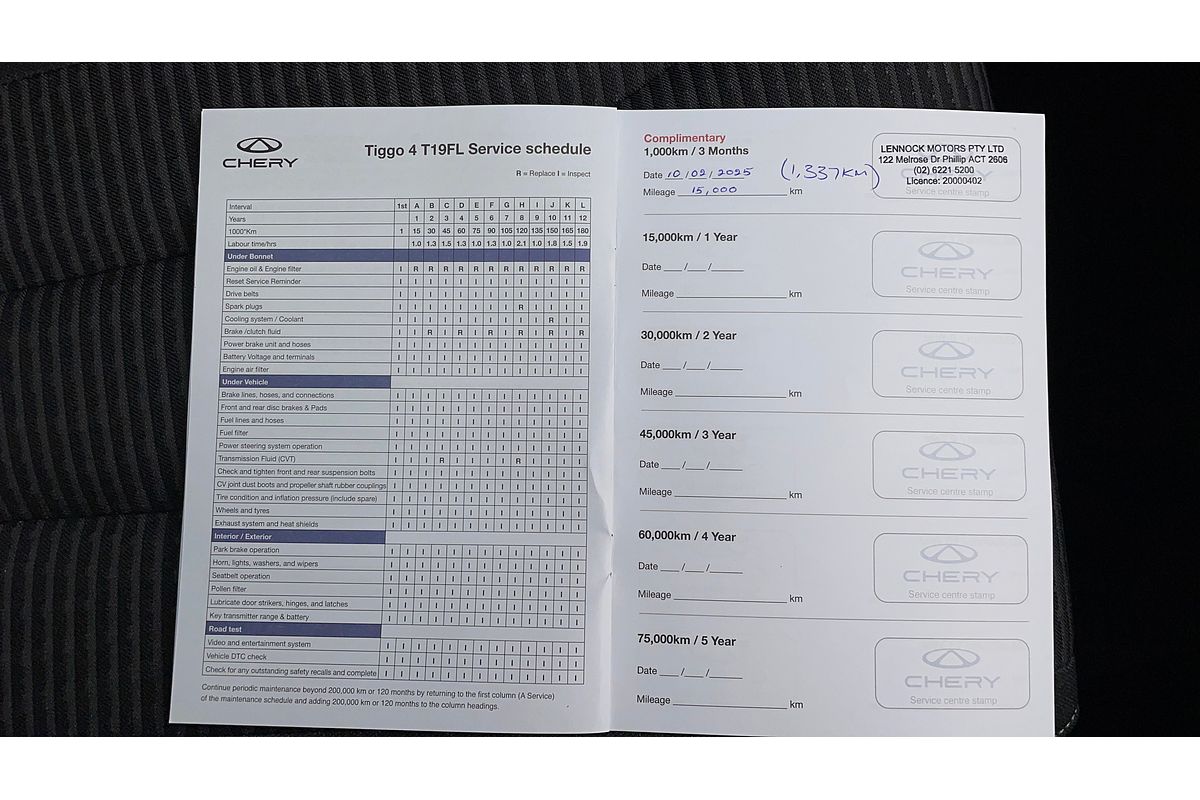 CHERY
Tiggo 4 T19FL Service schedule
R = Replace I = Inspect
Interval 1st A B C D E F G H I J K L
Years 1 2 3 4 5 6 7 8 9 10 11 12
1000*Km 1 15 30 45 60 75 90 105 120 135 150 165 180
Labour time/hrs 1.0 1.3 1.5 1.3 1.0 1.3 1.0 2.1 1.0 1.8 1.5 1.9
Under Bonnet
Engine oil & Engine filter I R R R R R R R R R R R R
Reset Service Reminder I I I I I I I I I I I I I
Drive belts I I I I I I I I I I I I I
Spark plugs I I I I I I I I R I I I I
Cooling system / Coolant I I I I I I I I I I R I I
Brake /clutch fluid I I R I R I R I R I R I R
Power brake unit and hoses I I I I I I I I I I I I I
Battery Voltage and terminals I I I I I I I I I I I I I
Engine air filter I I I I I I I I I I I I I
Under Vehicle
Brake lines, hoses, and connections I I I I I I I I I I I I I
Front and rear disc brakes & Pads I I I I I I I I I I I I I
Fuel lines and hoses I I I I I I I I I I I I I
Fuel filter I I I I I I I I I I I I I
Power steering system operation I I I I I I I I I I I I I
Transmission Fluid (CVT) I I I R I I I I R I I I I
Check and tighten front and rear suspension bolts I I I I I I I I I I I I I
CV joint dust boots and propeller shaft rubber couplings I I I I I I I I I I I I I
Tire condition and inflation pressure (include spare) I I I I I I I I I I I I I
Wheels and tyres I I I I I I I I I I I I I
Exhaust system and heat shields I I I I I I I I I I I I I
Interior / Exterior
Park brake operation I I I I I I I I I I I I I
Horn, lights, washers, and wipers I I I I I I I I I I I I I
Seatbelt operation I I I I I I I I I I I I I
Pollen filter I I I I I I I I I I I I I
Lubricate door strikers, hinges, and latches I I I I I I I I I I I I I
Key transmitter range & battery I I I I I I I I I I I I I
Road test
Video and entertainment system I I I I I I I I I I I I I
Vehicle DTC check I I I I I I I I I I I I I
Check for any outstanding safety recalls and complete I I I I I I I I I I I I I
Continue periodic maintenance beyond 200,000 km or 120 months by returning to the first column (A Service)
of the maintenance schedule and adding 200,000 km or 120 months to the column headings.
Complimentary
1,000km / 3 Months
Date 10/02/2025 (1,337KM)
Mileage 15,000 km
LENNOCK MOTORS PTY LTD
122 Melrose Dr Phillip ACT 2606
(02) 6221 5200
Licence: 20000402
15,000km / 1 Year
Date ___/___/______
Mileage ______ km
CHERY
Service centre stamp
30,000km / 2 Year
Date ___/___/______
Mileage ______ km
CHERY
Service centre stamp
45,000km / 3 Year
Date ___/___/______
Mileage ______ km
CHERY
Service centre stamp
60,000km / 4 Year
Date ___/___/______
Mileage ______ km
CHERY
Service centre stamp
75,000km / 5 Year
Date ___/___/______
Mileage ______ km
CHERY
Service centre stamp